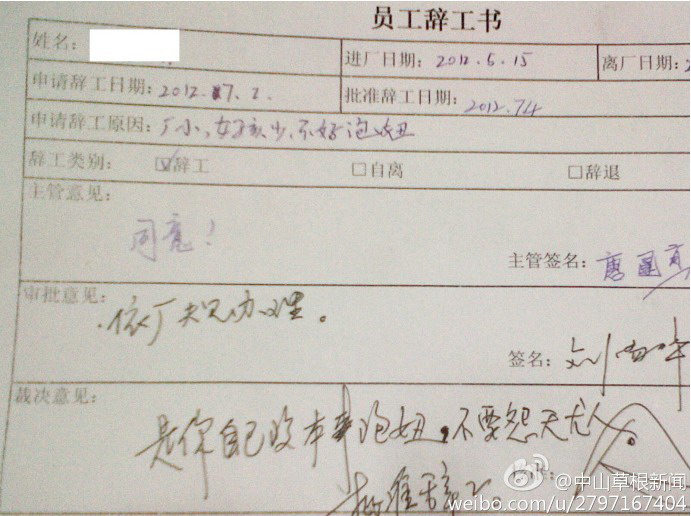 员工辞工书
姓名：
进厂日期：2012.5.15
离厂日期：
申请辞工日期：2012.7.2.
批准辞工日期：2012.7.4
申请辞工原因：厂小，女孩少，不好泡妞
辞工类别：☑辞工 □自离 □辞退
主管意见：
同意！
主管签名：
审批意见：
依厂规办理。
签名：
裁决意见：
是你自己没本事泡妞，不要怨天尤人。
批准辞工。
@中山草根新闻
weibo.com/u/2797167404